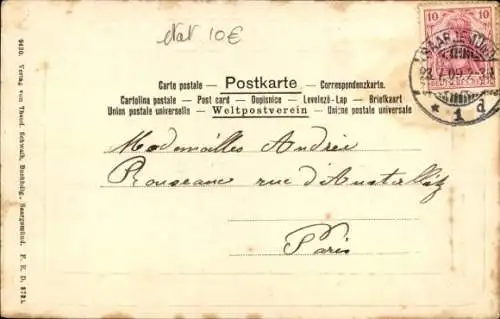 10€
10
SAARGEMÜND
1 d
Carte postale — Postkarte — Correspondenzkarte.
Cartolina postale — Post card — Dopisnice — Levelezö-Lap — Briefkaart
Union postale universelle — Weltpostverein — Unione postale universale
Mademoiselles Andrée
Rousseau rue d'Austerlitz
Paris
9470. Verlag von Theod. Schwalb, Buchhdlg., Saargemünd. F. K. D. 8721.